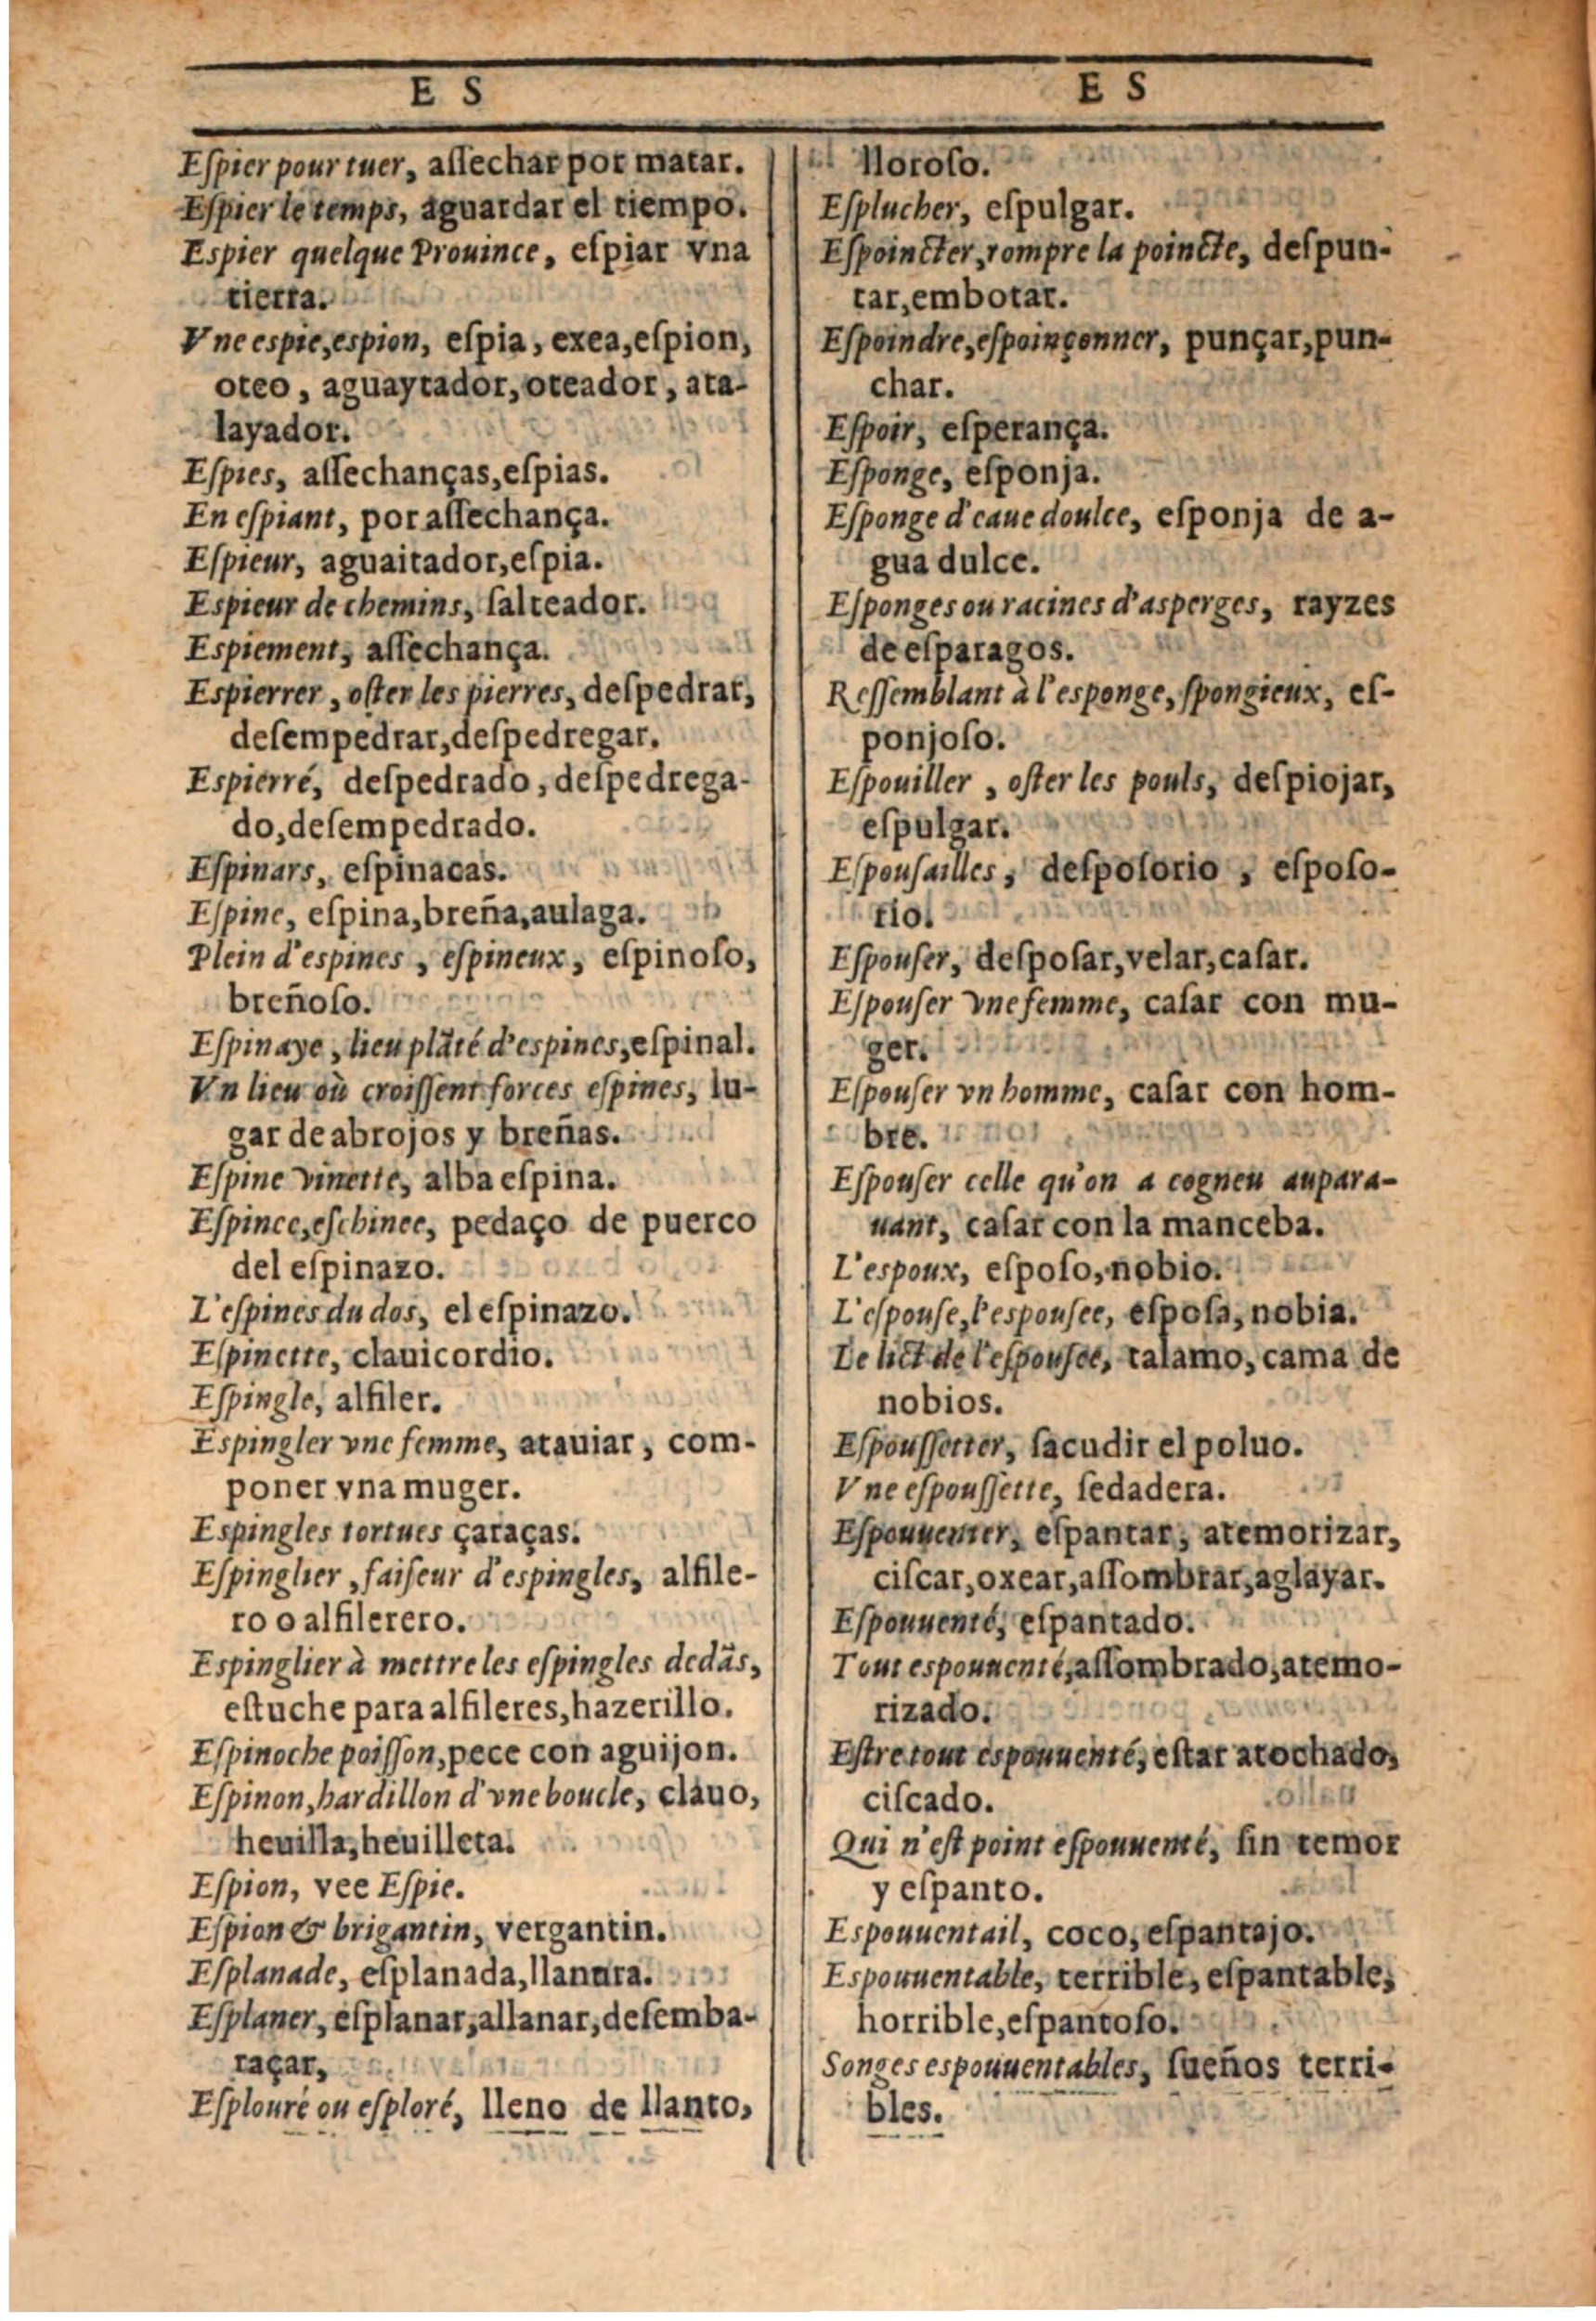 E S
Eſpier pour tuer, aſſechar por matar.
Eſpier le temps, aguardar el tiempo.
Eſpier quelque Prouince, eſpiar vna
tierra.
Vne espie,espion, eſpia, exea,eſpion,
oteo, aguaytador,oteador, ata-
layador.
Eſpies, aſſechanças,eſpias.
En eſpiant, por aſſechança.
Eſpieur, aguaitador,eſpia.
Espieur de chemins, ſalteador.
Espiement, aſſechança.
Espierrer, oſter les pierres, deſpedrar,
deſempedrar,deſpedregar.
Eſpierré, deſpedrado, deſpedrega-
do,deſempedrado.
Eſpinars, eſpinacas.
Eſpine, eſpina,breña,aulaga.
Plein d'espines, eſpineux, eſpinoſo,
breñoſo.
Eſpinaye, lieu plãté d'espines,eſpinal.
Vn lieu où croiſſent forces eſpines, lu-
gar de abrojos y breñas.
Eſpine vinette, alba eſpina.
Eſpinee,eſchinee, pedaço de puerco
del eſpinazo.
L'eſpines du dos, el eſpinazo.
Eſpinette, clauicordio.
Eſpingle, alfiler.
Espingler vne femme, atauiar, com-
poner vna muger.
Espingles tortues çaraças.
Eſpinglier, faiſeur d'espingles, alfile-
ro o alfilerero.
Espinglier à mettre les eſpingles dedãs,
eſtuche para alfileres,hazerillo.
Eſpinoche poiſſon,pece con aguijon.
Eſpinon,hardillon d'vne boucle, clauo,
heuilla,heuilleta.
Eſpion, vee Eſpie.
Eſpion & brigantin, vergantin.
Eſplanade, eſplanada,llanura.
Eſplaner, eſplanar,allanar,deſemba-
raçar,
Eſplouré ou eſploré, lleno de llanto,
E S
lloroſo.
Eſplucher, eſpulgar.
Eſpoincter,rompre la poincte, deſpun-
tar,embotar.
Eſpoindre,eſpoinçonner, punçar,pun-
char.
Eſpoir, eſperança.
Eſponge, eſponja.
Eſponge d'eaue doulce, eſponja de a-
gua dulce.
Eſponges ou racines d'asperges, rayzes
de eſparagos.
Reſſemblant à l'esponge, ſpongieux, eſ-
ponjoſo.
Eſpouiller, oſter les pouls, deſpiojar,
eſpulgar.
Eſpouſailles, deſpoſorio, eſpoſo-
rio.
Eſpouſer, deſpoſar,velar,caſar.
Eſpouſer vne femme, caſar con mu-
ger.
Eſpouſer vn homme, caſar con hom-
bre.
Eſpouſer celle qu'on a cogneu aupara-
uant, caſar con la manceba.
L'espoux, eſpoſo,nobio.
L'eſpouſe,l'espouſee, eſpoſa,nobia.
Le lict de l'eſpouſee, talamo, cama de
nobios.
Eſpouſſetter, ſacudir el poluo.
Vne eſpouſſette, ſedadera.
Eſpouuenter, eſpantar, atemorizar,
ciſcar,oxear,aſſombrar,aglayar.
Eſpouuenté, eſpantado.
Tout espouuenté,aſſombrado,atemo-
rizado.
Eſtre tout espouuenté, eſtar atochado,
ciſcado.
Qui n'eſt point eſpouuenté, ſin temor
y eſpanto.
Espouuentail, coco, eſpantajo.
Espouuentable, terrible, eſpantable,
horrible,eſpantoſo.
Songes espouuentables, ſueños terri-
bles.